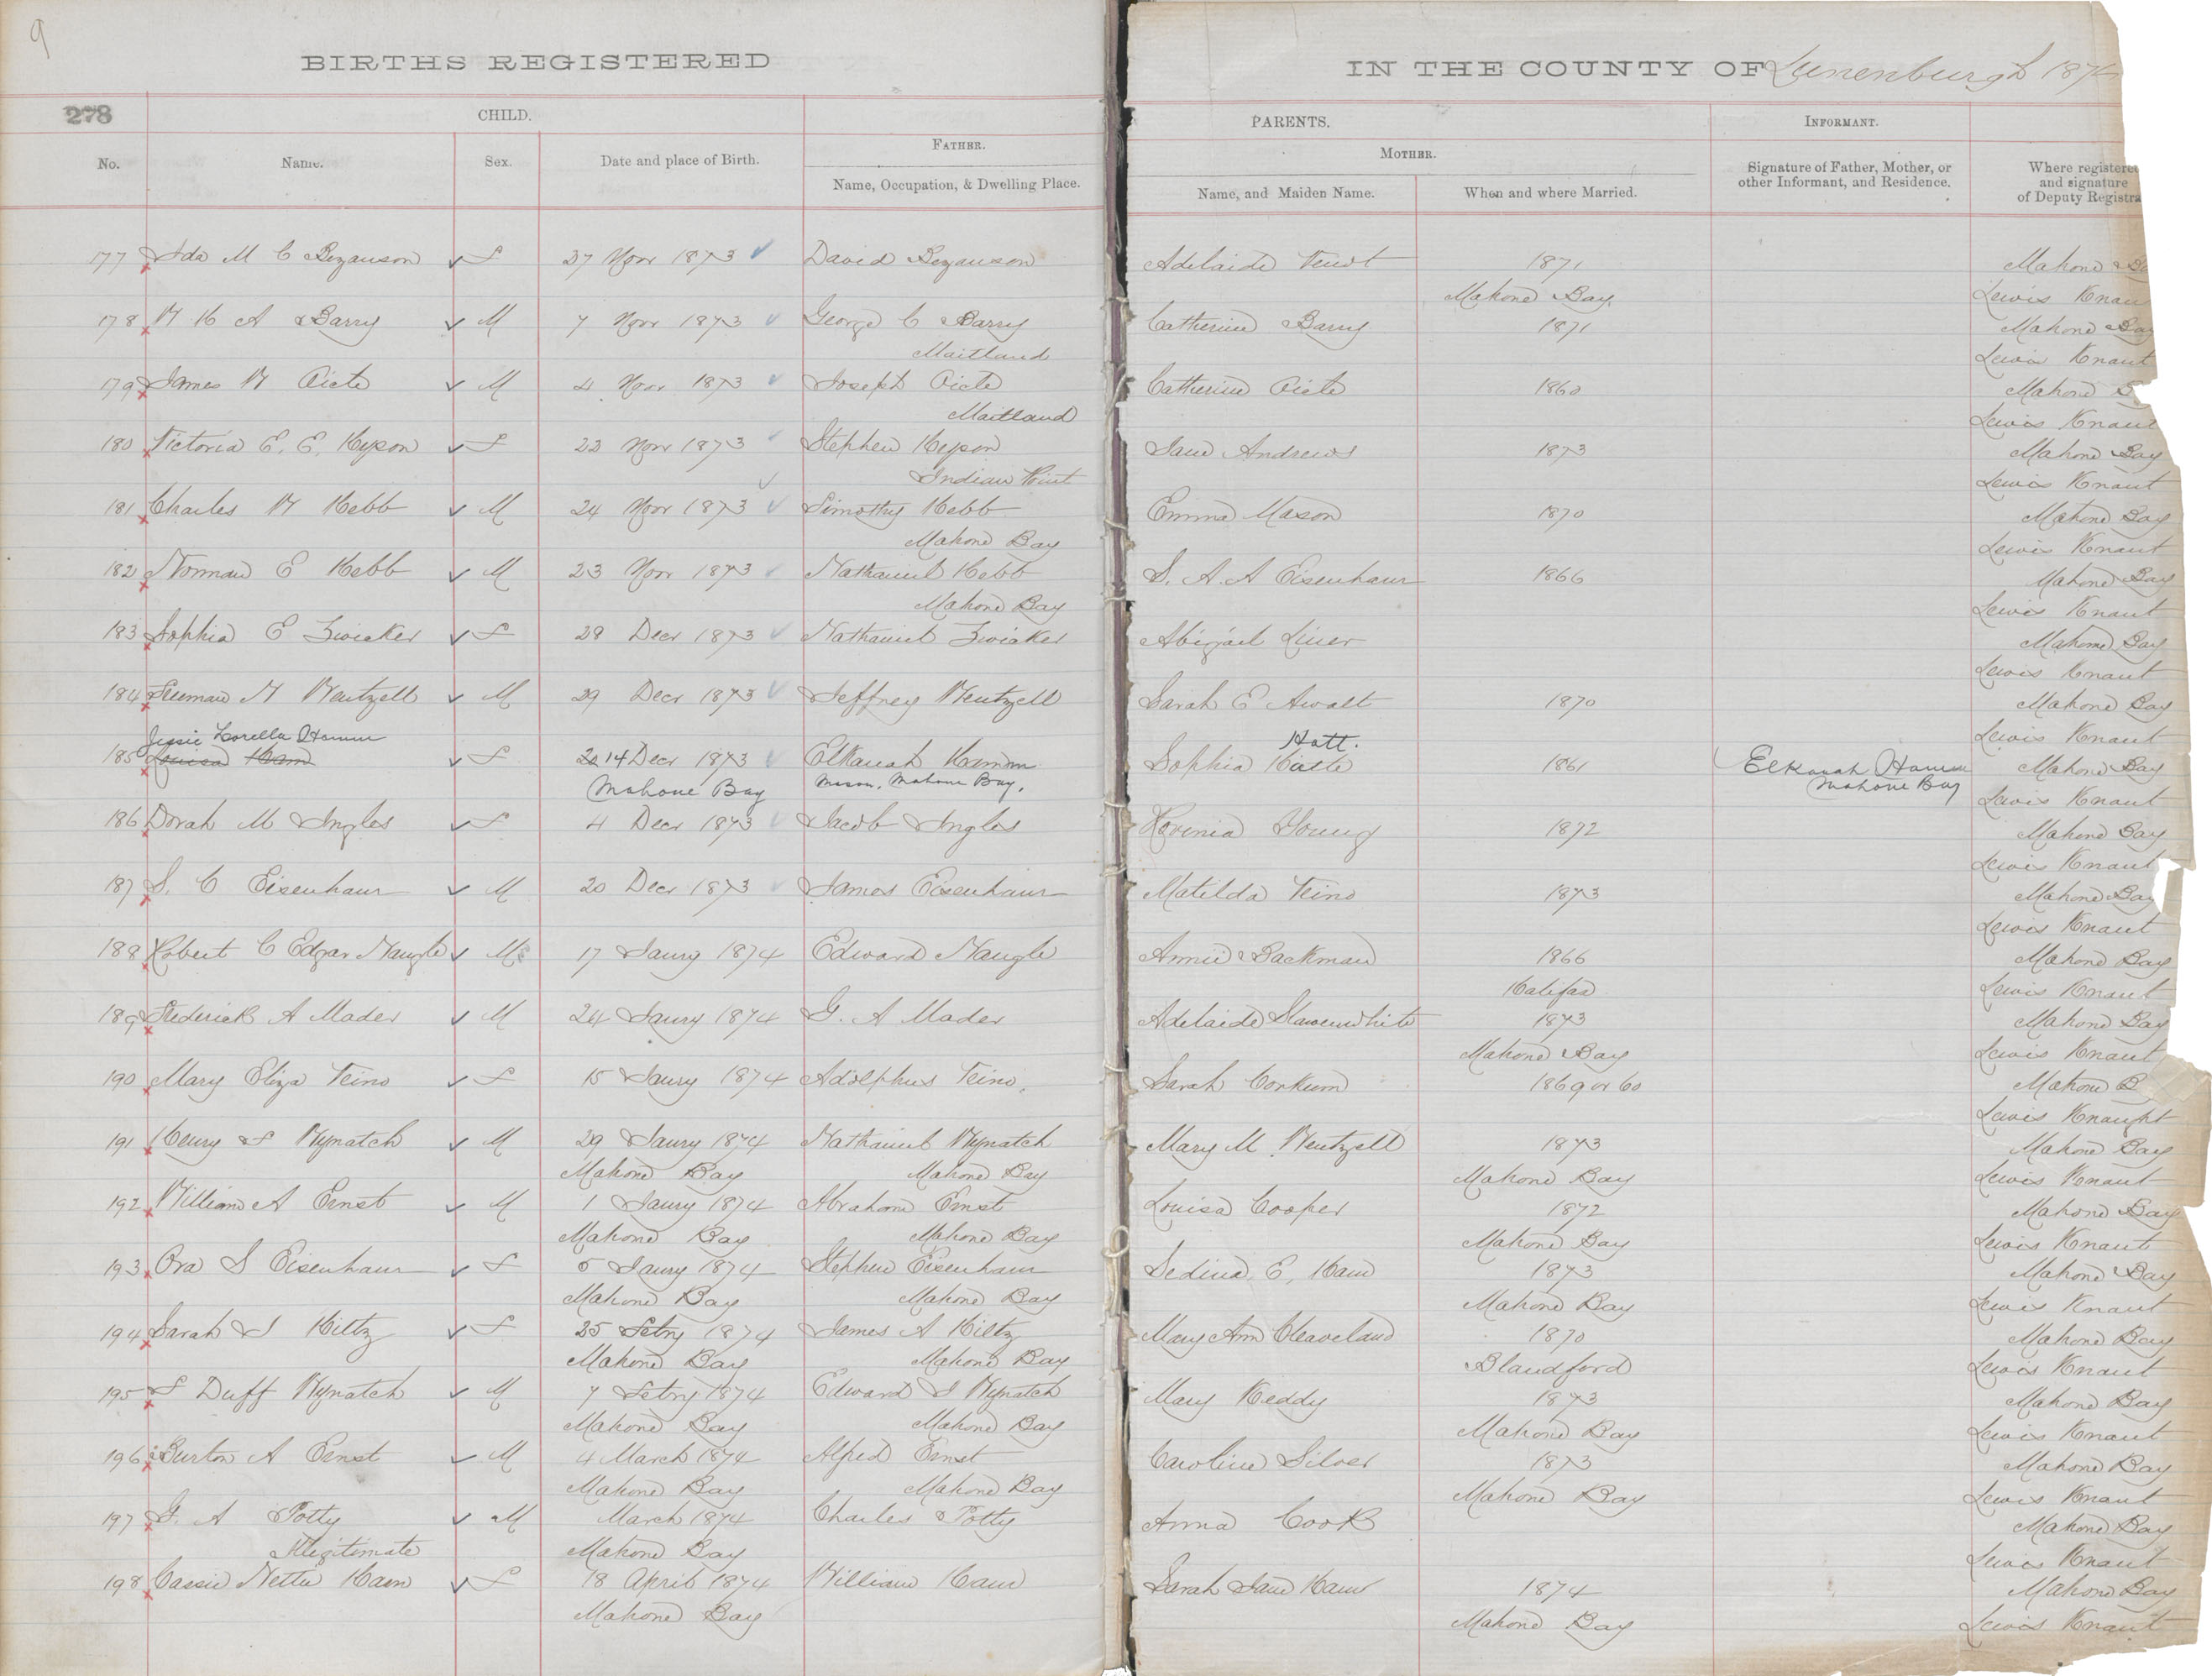 9
BIRTHS REGISTERED IN THE COUNTY OF Lunenburgh 1874
278
CHILD. PARENTS. INFORMANT.
FATHER. MOTHER.
No. Name. Sex. Date and place of Birth. Name, Occupation, & Dwelling Place. Name, and Maiden Name. When and where Married. Signature of Father, Mother, or other Informant, and Residence. Where registered and signature of Deputy Registra
177 Ida M C Bezanson f 27 Novr 1873 David Bezanson Adelaide 1871 Mahone
Mahone Bay Lewis Knau
178 W H A Barry M 7 Novr 1873 George C Barry Catherine Barry 1871 Mahone Bay
Maitland Lewis Knaut
179 James W M 4 Novr 1873 Joseph Catherine 1860 Mahone
Maitland Lewis Knaut
180 Victoria E. E. Hyson f 22 Novr 1873 Stephen Hyson Jane Andrews 1873 Mahone Bay
Indian Point Lewis Knaut
181 Charles W Hebb M 24 Novr 1873 Timothy Hebb Emma Mason 1870 Mahone Bay
Mahone Bay Lewis Knaut
182 Norman E Hebb M 23 Novr 1873 Nathaniel Hebb S. A. A Eisenhaur 1866 Mahone Bay
Mahone Bay Lewis Knaut
183 Sophia E Zwicker f 28 Decr 1873 Nathaniel Zwicker Abigail Mahone Bay
Lewis Knaut
184 Freeman Wentzell M 29 Decr 1873 Jeffrey Wentzell Sarah E Awalt 1870 Mahone Bay
Jessie Lorella Hamm Hatt. Lewis Knaut
185 Louisa Ham f 20 14 Decr 1873 Elkanah Hamm Sophia Hatte 1861 Elkanah Hamm Mahone Bay
Mahone Bay Mason, Mahone Bay. Mahone Bay Lewis Knaut
186 Dorah M Ingles f 4 Decr 1873 Jacob Ingles Young 1872 Mahone Bay
Lewis Knaut
187 S. C Eisenhaur M 20 Decr 1873 James Eisenhaur Matilda Veino 1873 Mahone Bay
Lewis Knaut
188 Robert C Edgar Naugle M 17 Jaury 1874 Edward Naugle Annie Backman 1866 Mahone Bay
Halifax Lewis Knaut
189 Frederick A Mader M 24 Jaury 1874 G. A Mader Adelaide Slawenwhite 1873 Mahone Bay
Mahone Bay Lewis Knaut
190 Mary Eliza Veino f 15 Jaury 1874 Adolphus Veino. Sarah Corkum 1869 or 60 Mahone B
Lewis Knaught
191 Henry F Wynatch M 29 Jaury 1874 Nathaniel Wynatch Mary M Wentzell 1873 Mahone Bay
Mahone Bay Mahone Bay Mahone Bay Lewis Knaut
192 William A Ernst M 1 Jaury 1874 Abraham Ernst Louisa Cooper 1872 Mahone Bay
Mahone Bay Mahone Bay Mahone Bay Lewis Knaut
193 Ora S Eisenhaur f 5 Jaury 1874 Stephen Eisenhaur Sedina E, Ham 1873 Mahone Bay
Mahone Bay Mahone Bay Mahone Bay Lewis Knaut
194 Sarah J Hiltz f 25 Febry 1874 James A Hiltz Mary Ann Cleaveland 1870 Mahone Bay
Mahone Bay Mahone Bay Blandford Lewis Knaut
195 F Duff Wynatch M 7 Febry 1874 Edward J Wynatch Mary Keddy 1873 Mahone Bay
Mahone Bay Mahone Bay Mahone Bay Lewis Knaut
196 Burton A Ernst M 4 March 1874 Alfred Ernst Caroline Silver 1873 Mahone Bay
Mahone Bay Mahone Bay Mahone Bay Lewis Knaut
197 G. A Potty M March 1874 Charles Potty Anna Cook Mahone Bay
Illegitimate Mahone Bay Lewis Knaut
198 Cassie Netta Ham f 18 April 1874 William Ham Sarah Jane Ham 1874 Mahone Bay
Mahone Bay Mahone Bay Lewis Knaut